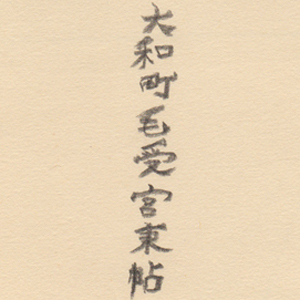 大和町毛受宮東帖